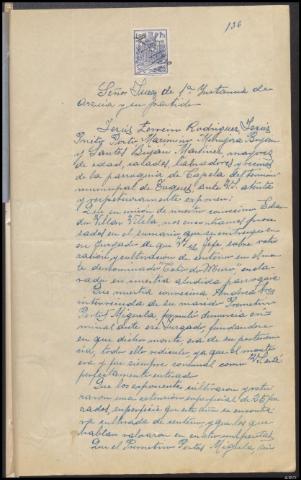 136
Señor Juez de 1ª Instancia de
Arzúa y su partido
Jesús Ferreiro Rodríguez, Jesús
Porto, Maximino
y Santos Martínez, mayores
de edad, casados, labradores, y vecinos
de la parroquia de Capela del término
municipal de Toques, ante Vd. atenta
y respetuosamente exponen:
Que en unión de nuestro convecino
Villar Villar nos encontramos proce
sados en el sumario, que se instruye en
ese Juzgado de que Vd. es Jefe sobre rotu
ración y cultivación de centeno en el mon
te denominado Coto do Muro, encla
vado en nuestra aludida parroquia
Que nuestra convecina
intervenida de su marido Primitivo
Portos formuló denuncia cri
minal ante ese Juzgado, fundándose
en que dicho monte era de su pertenen
cia, todo ello ridículo ya que el monte
era y fue siempre comunal como Vd. está
perfectamente enterado
Que los exponentes cultivaron y rotu
raron una extensión superficial de 25 fe
rrados, superficie que este año se encontra
ba cultivada de centeno, y que los que
hablan valoraron en cuatro mil pesetas,
Que el Primitivo Portos